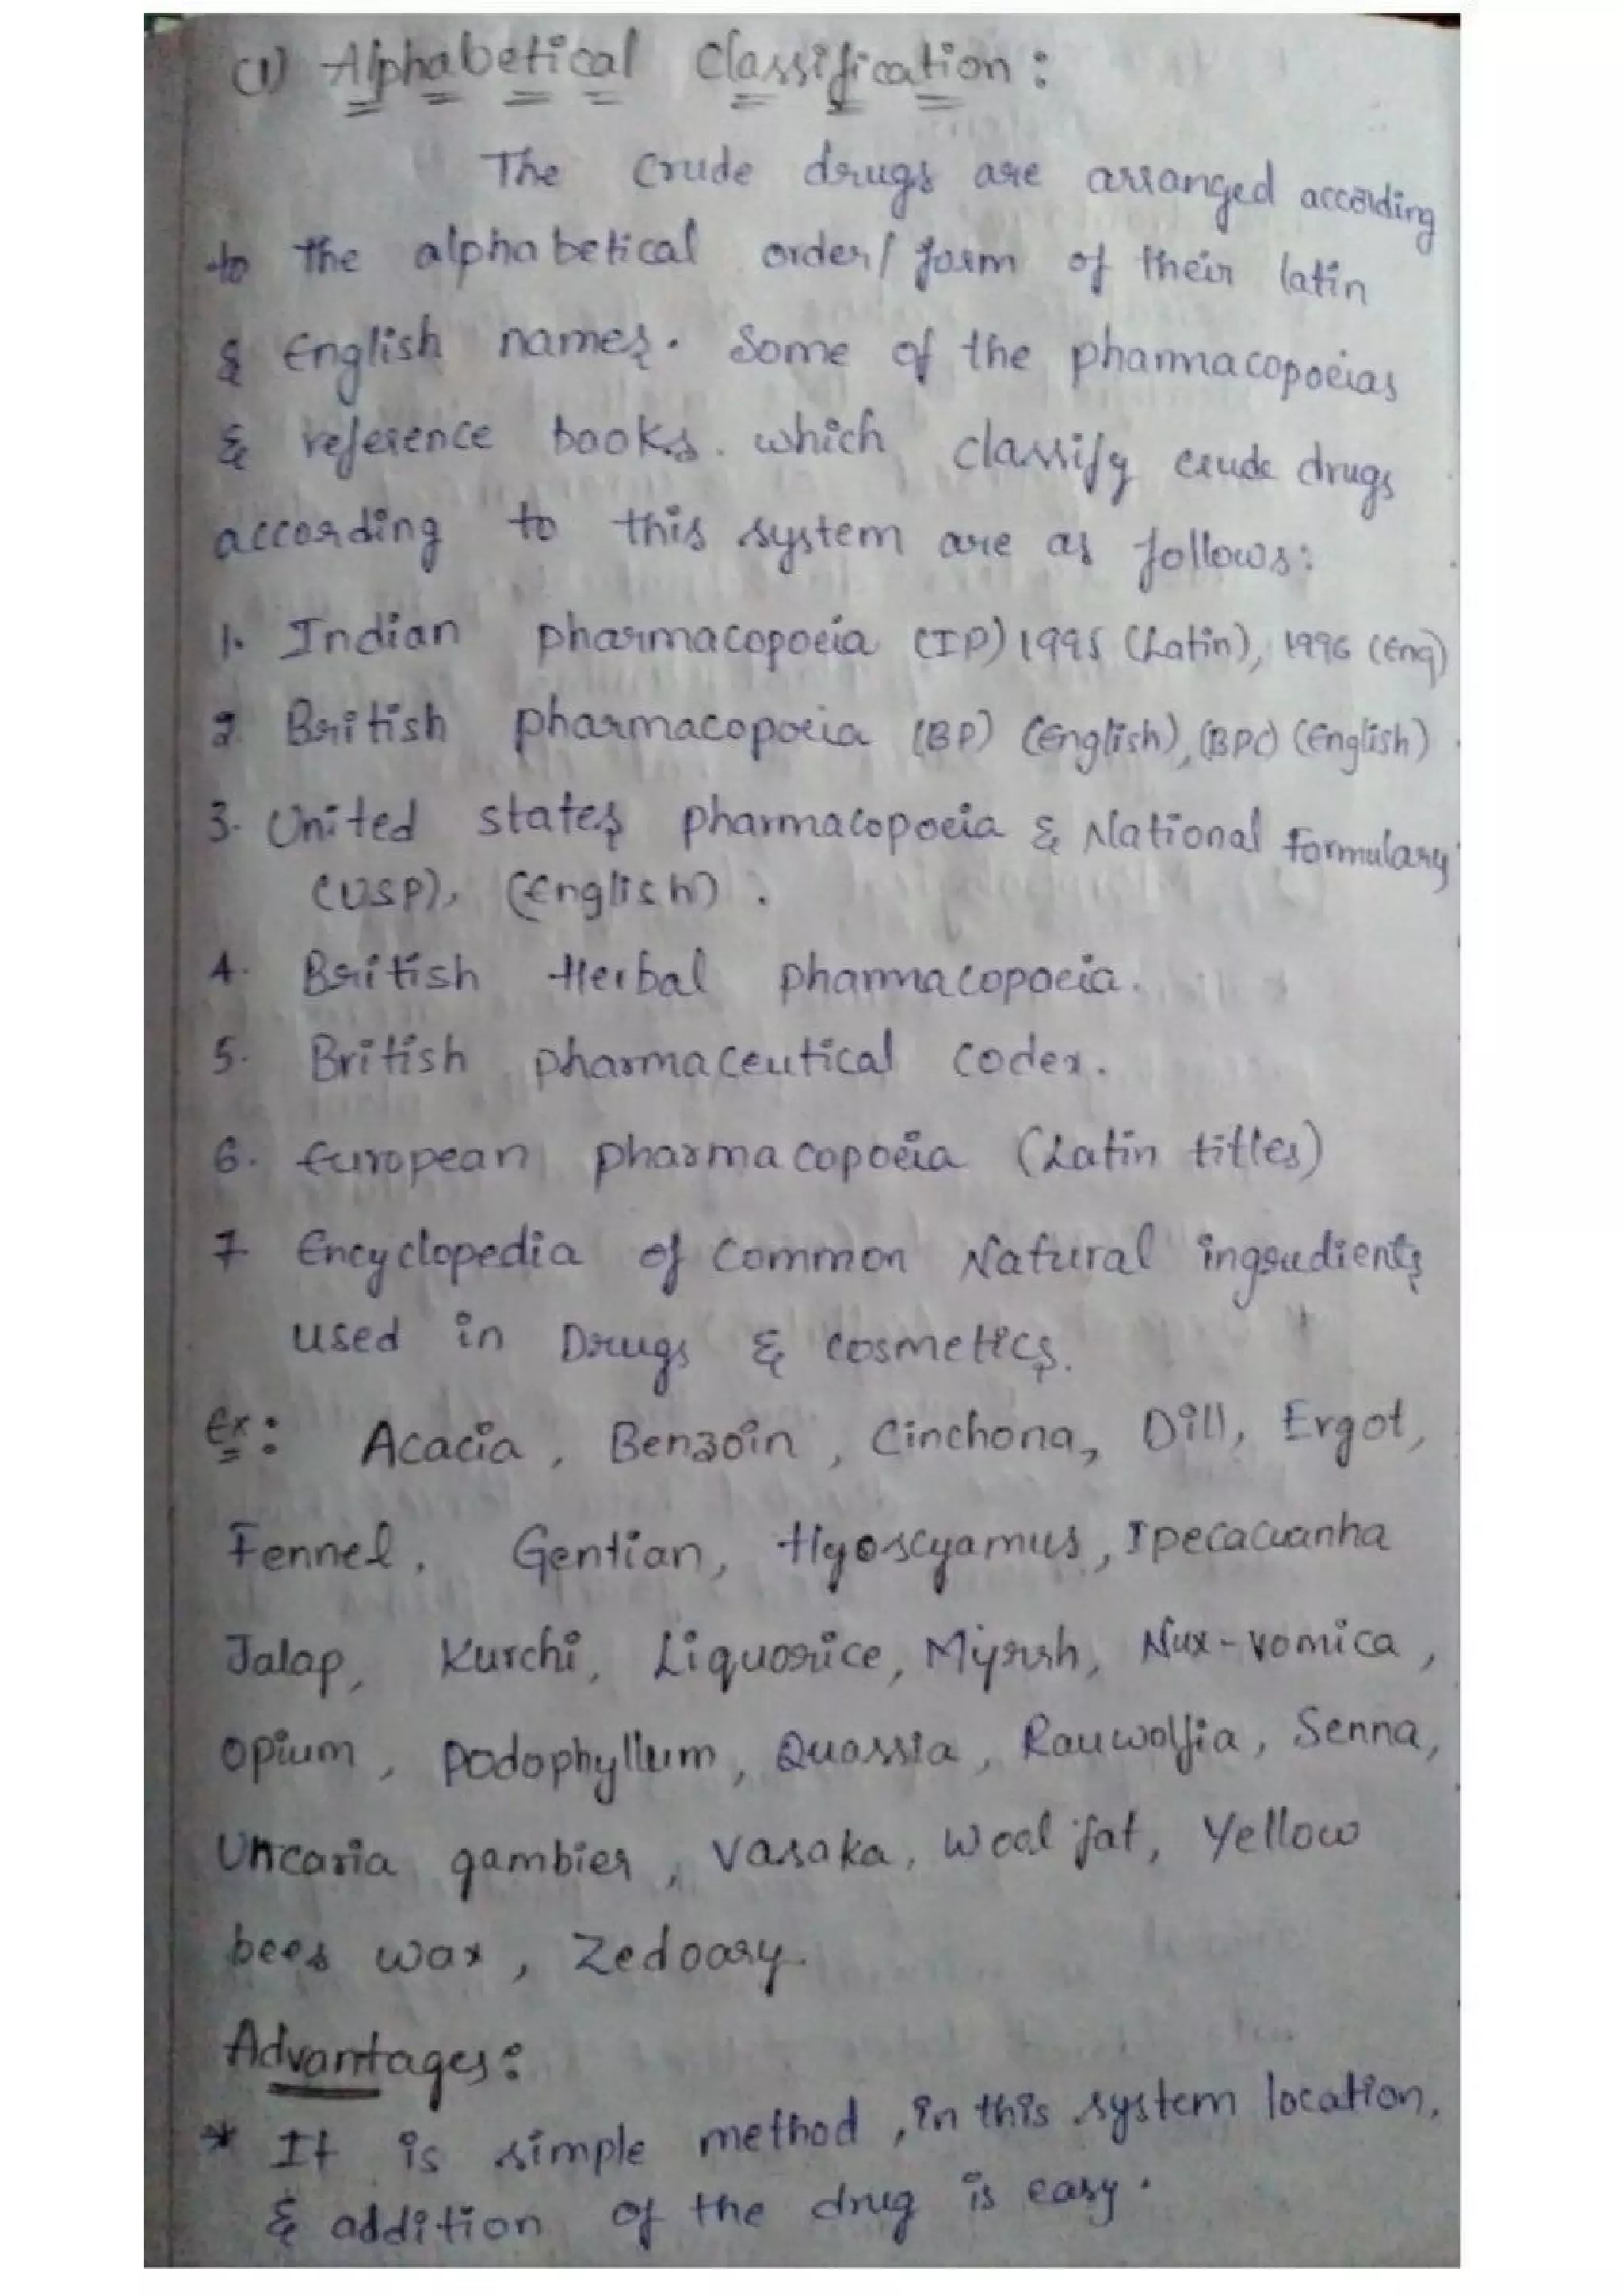 (1) Alphabetical Classification :
The Crude drugs are arranged according
to the alphabetical order/ form of their latin
& English names. Some of the pharmacopoeias
& reference books. which classify crude drugs
according to this system are as follows:
1. Indian pharmacopoeia (IP) 1995 (Latin), 1996 (Eng)
2 British pharmacopoeia (BP) (English), (BPC) (English)
3. United states pharmacopoeia & National Formulary
(USP), (English).
4. British Herbal pharmacopoeia.
5. British pharmaceutical codex.
6. European pharmacopoeia (Latin titles)
7 Encyclopedia of Common Natural ingredients
used in Drugs & cosmetics.
Ex: Acacia, Benzoin, Cinchona, Dill, Ergot,
Fennel, Gentian, Hyoscyamus, Ipecacuanha
Jalap, Kurchi, Liquorice, Myrrh, Nux-vomica,
Opium, Podophyllum, Quassia, Rauwolfia, Senna,
Uncaria gambier, Vasaka, Wool fat, Yellow
bees wax, Zedoary.
Advantages:
* It is simple method, in this system location,
& addition of the drug is easy.